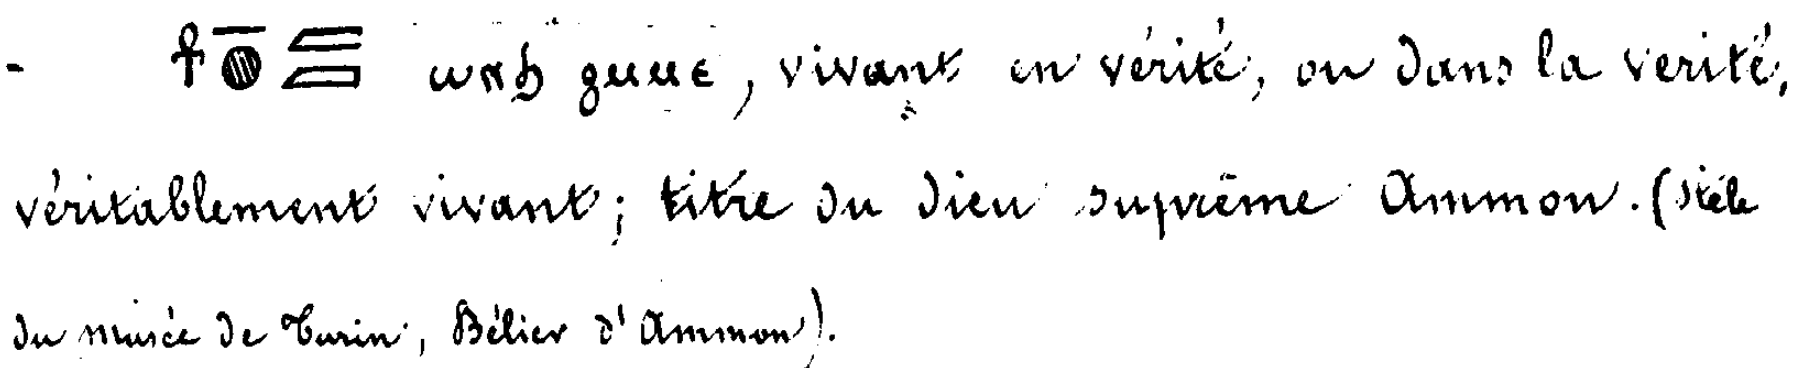 - ☥ ⲱⲛϧ ϩⲙⲙⲉ, vivant en vérité, ou dans la verité,
véritablement vivant; titre du dieu suprême Ammon. (stèle
du musée de Turin, Bélier d'Ammon).